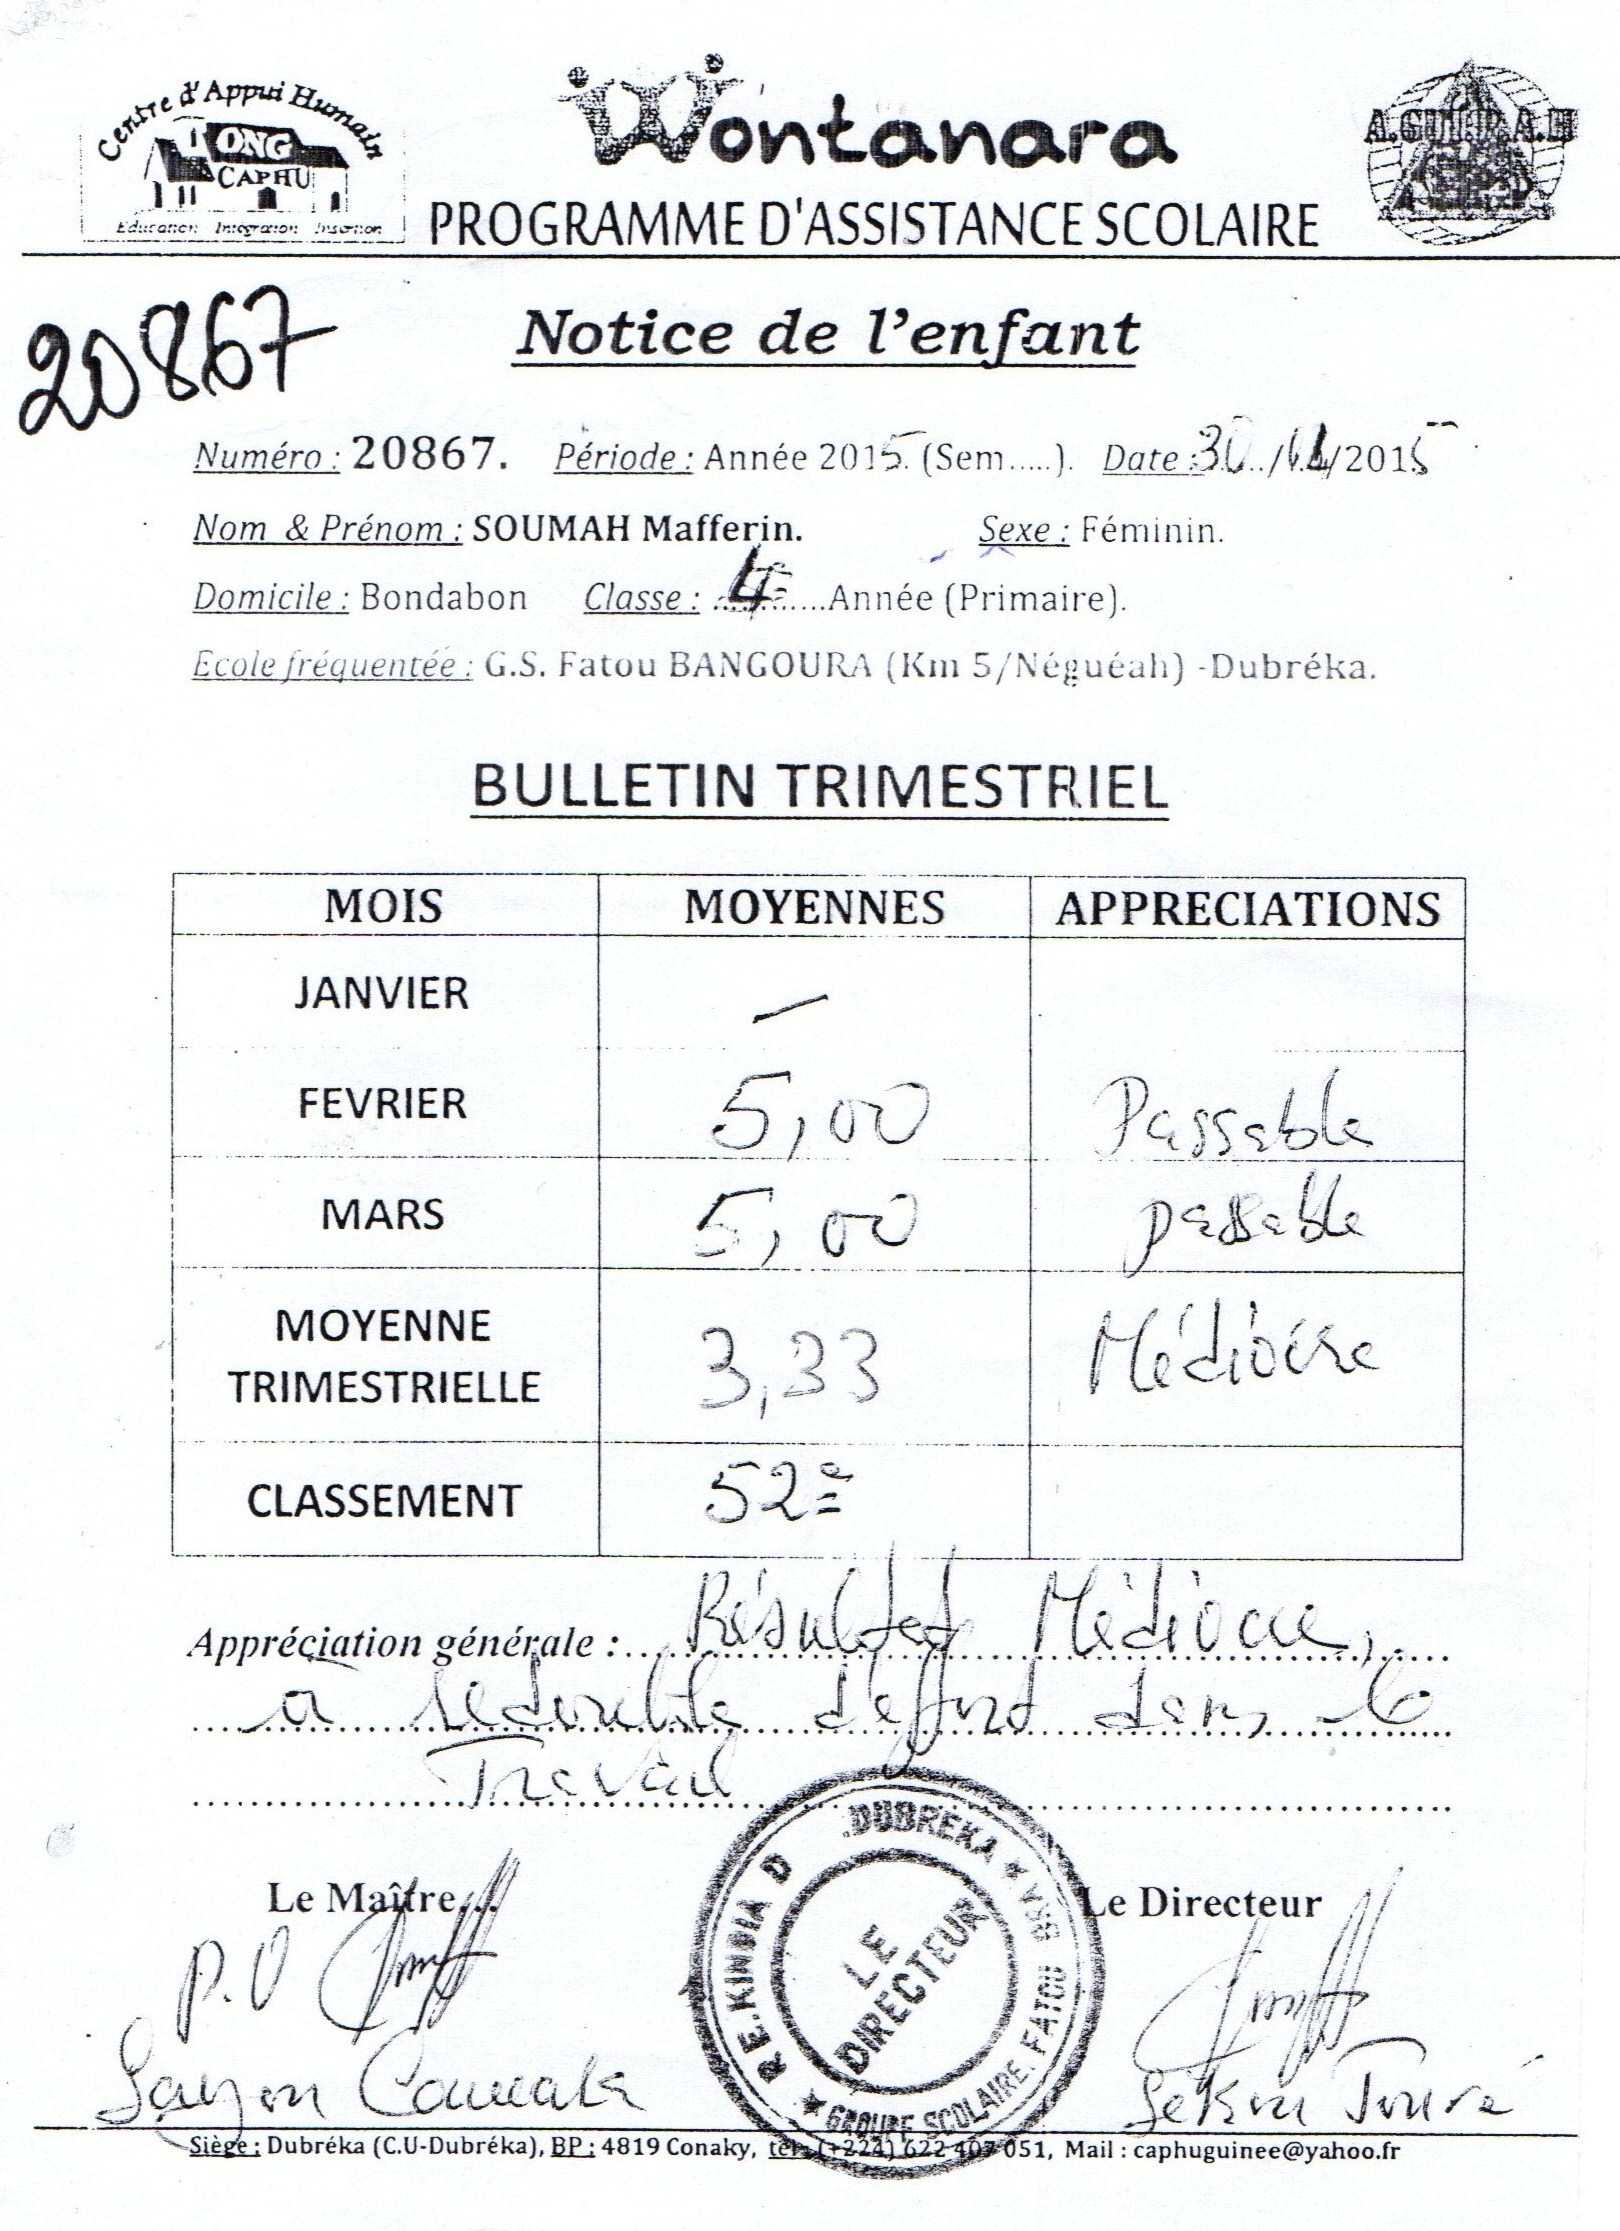 Centre d'Appui Humain
ONG
CAPHU
Education Intégration Insertion
Wontanara
PROGRAMME D'ASSISTANCE SCOLAIRE
20867
Notice de l'enfant
Numéro : 20867. Période : Année 2015. (Sem.....). Date : 30/ /2015
Nom & Prénom : SOUMAH Mafferin. Sexe : Féminin.
Domicile : Bondabon Classe : 4e Année (Primaire).
Ecole fréquentée : G.S. Fatou BANGOURA (Km 5/Néguéah) -Dubréka.
BULLETIN TRIMESTRIEL
MOIS MOYENNES APPRECIATIONS
JANVIER –
FEVRIER 5,00 Passable
MARS 5,00 passable
MOYENNE
TRIMESTRIELLE 3,33 Médiocre
CLASSEMENT 52e
Appréciation générale : Résultat Médiocre,
à redoubler d'effort dans le
Travail
Le Maître Le Directeur
P.O
Camara Sékou Touré
DUBREKA
RE.KINDIA D
GROUPE SCOLAIRE. FATOU BRA
LE
DIRECTEUR
Siège : Dubréka (C.U-Dubréka), BP : 4819 Conaky, tél : (+224) 622 407 051, Mail : caphuguinee@yahoo.fr